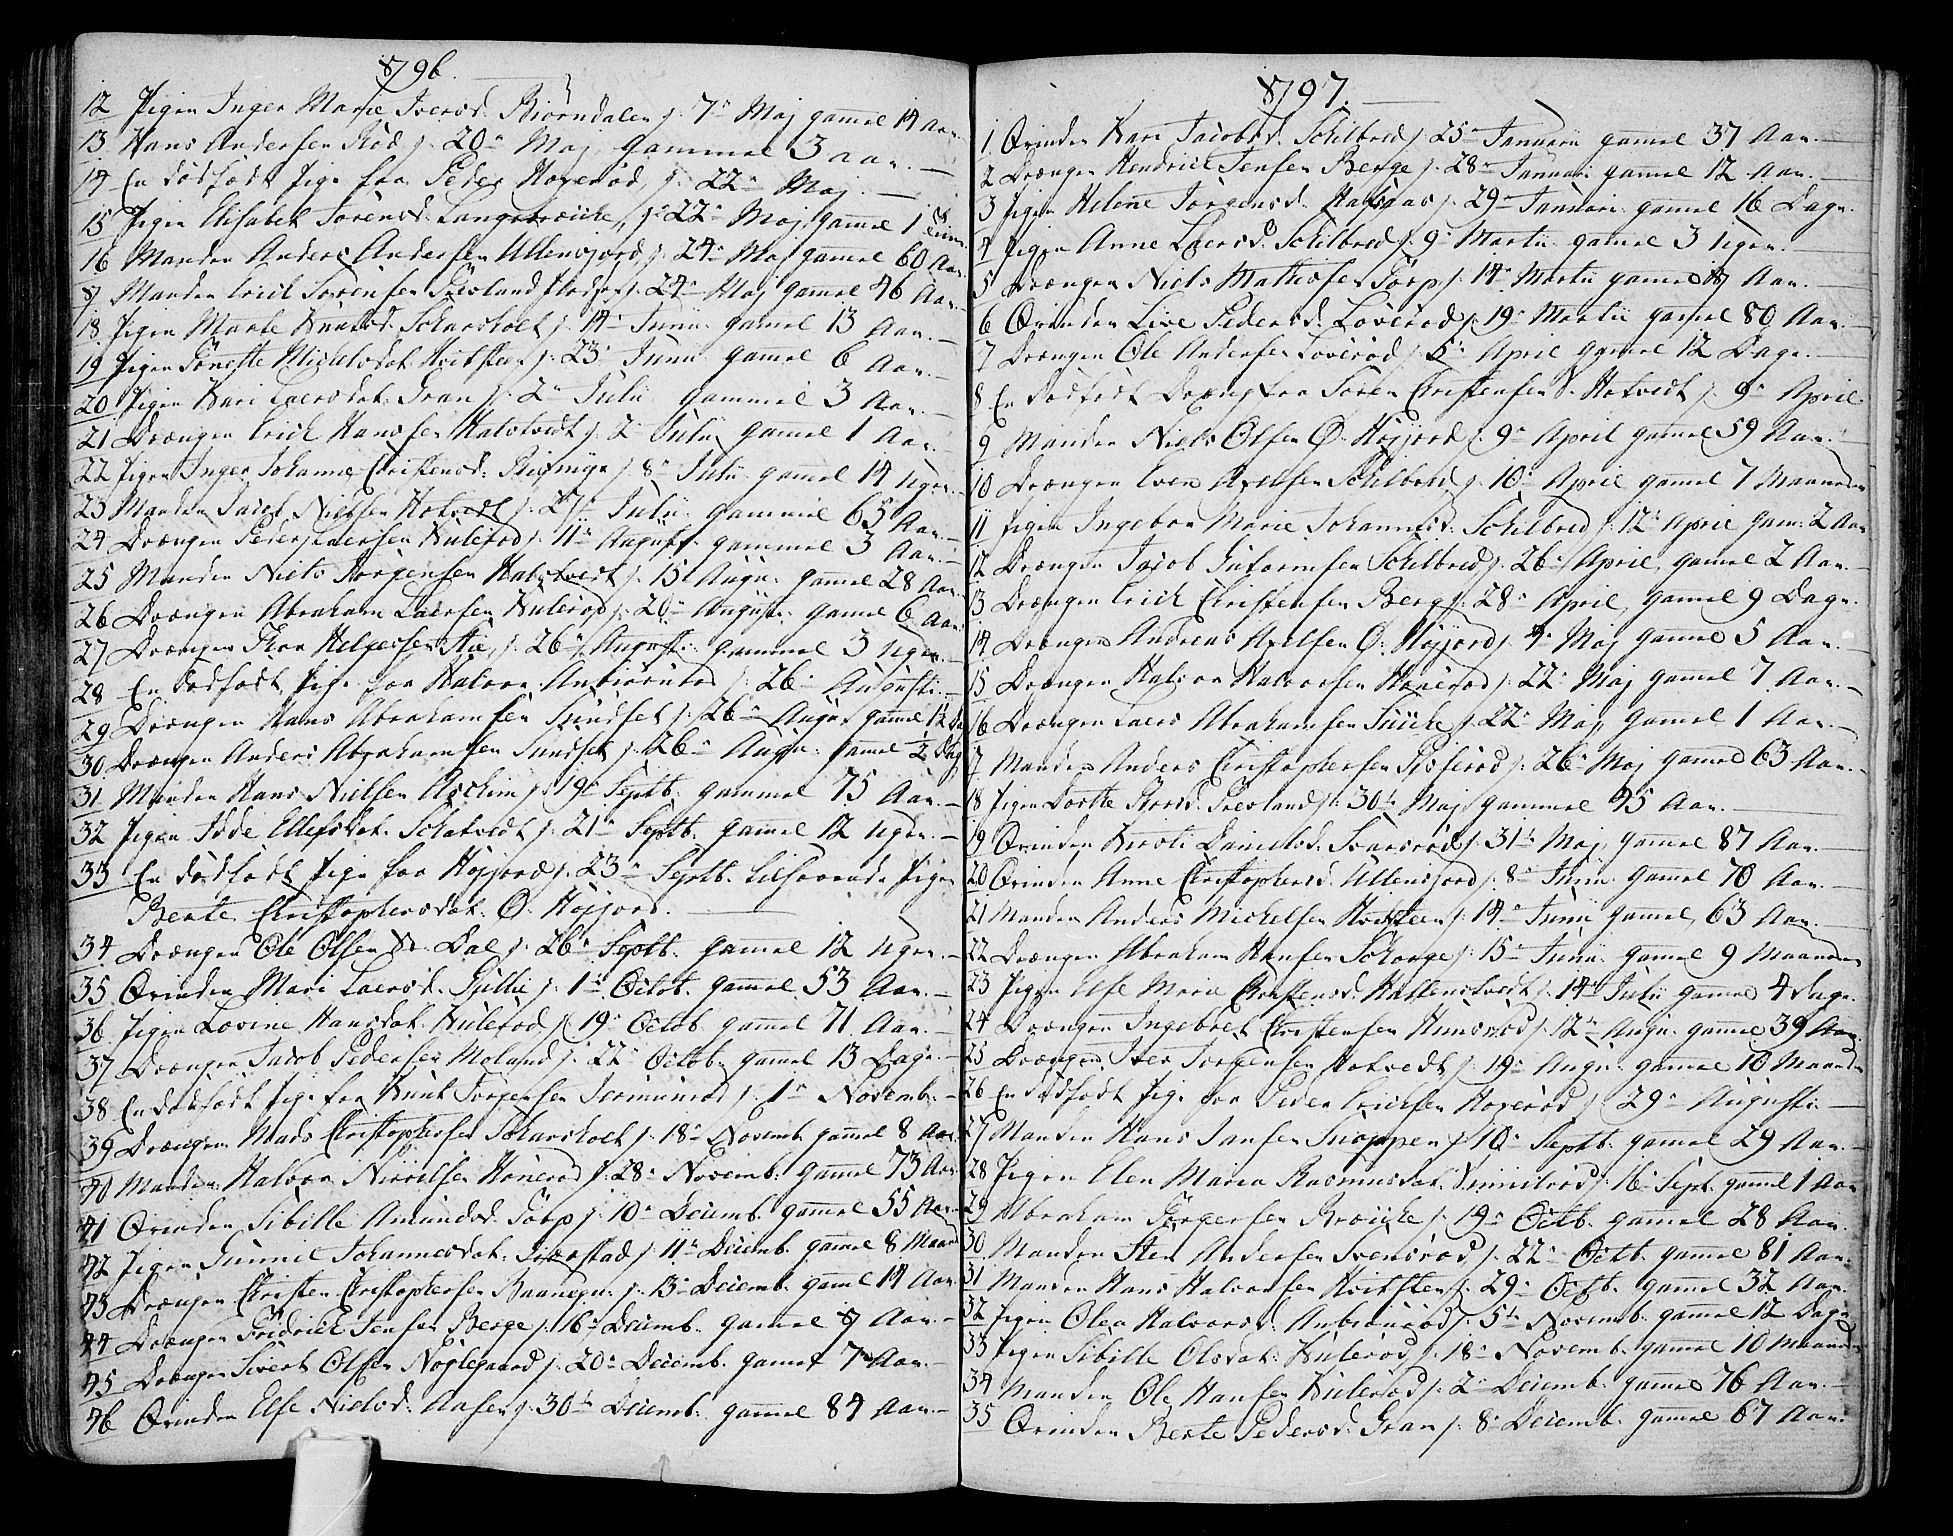 1796.
12 Pigen Inger Marie Iversd. Biörndalen p. 7de Maj gamel 14 Aar.
13 Hans Andersen Röd p. 20de Maj gammel 3 aar.
14 En dödfödt Pige fra Peder Hoyeröd p. 22de Maj.
15 Pigen Elisabet Sörensd. p. 22de Maj gamel 1
16 Manden Anders Andersen Ullensjord p. 24de Maj gamel 60 Aar.
17 Manden Erich Sörensen p. 24de Maj gamel 46 Aar
18 Pigen Marte Knudsd. Scharsholt p. 14de Junii gamel 13 Aar.
19 Pigen Michelsdat. Hvitsten p. 23de Junii gamel 6 Aar.
20 Pigen Kari Laersdat. Gran p. 2de Julii gammel 3 Aar.
21 Drængen Erich Hansen Halstvedt p. 2de Julii gamel 1 Aar.
22 Pigen Inger Johanne Christensd. p. 8de Julii gamel 14 Uger.
23 Manden Jacob Nielsen Hotvedt p. 27de Julii gammel 65 Aar.
24 Drængen Peder Laersen Kuleröd p. 11de August gammel 3 Aar.
25 Manden Niels Jörgensen Halstvedt p. 15de Augu. gamel 28 Aar.
26 Drængen Abraham Laersen Kuleröd p. 20de August. gamel 6 Aar.
27 Drængen Thor Helgersen p. 26de August. gammel 3 Uger.
28 En dödfödt Pige fra Halvor Anbiörnröd p. 26de Augusti.
29 Drængen Hans Abrahamsen Sundset p. 26de Augu. gamel 1/2 Dag
30 Drængen Anders Abrahamsen Sundset p. 26de Augu. gamel 1/2 Dag
31 Manden Hans Nielsen Aschim p. 19de Septb. gammel 75 Aar.
32 Pigen Idde Ellefsdat. Schatvedt p. 21de Septb. gamel 12 Uger.
33 En dödfödt Pige fra Höjjord p. 23de Septb. tilhörende Pigen
Berte Christophersdat. Ö. Höjjord.
34 Drængen Ole Olsen N. Dal p. 26de Septb. gamel 12 Uger.
35 Qvinden Mari Laersd. Gjillie p. 1ste Octob. gamel 53 Aar.
36 Pigen Lovine Hansdat. Kuleröd p. 19de Octob. gamel 71 Aar.
37 Drængen Jacob Pedersen Moland p. 22de Octob. gamel 13 Dage.
38 En dödfödt Pige fra Knut Jörgensen p. 1ste Novemb.
39 Drængen Mads Christophersen Scharsholt p. 18de Novemb. gamel 8 Aar.
40 Manden Halvor Nirielsen Höneröd p. 28de Novemb. gamel 73 Aar.
41 Qvinden Sibille Amundsd. Törp p. 10de Decemb. gamel 55 Aar.
42 Pigen Gunnil Johannesdat. p. 11te Decemb. gamel 8 Maan.
43 Drængen Christen Christophersen p. 13de Decemb. gamel 14 Aar.
44 Drængen Fridrich Jensen Berge p. 16de Decemb. gamel 17 Aar.
45 Drængen Sivert Olsen Nöglegaard p. 20de Decemb. gamel 7 Aar.
46 Qvinden Else Nielsd. Aasen p. 30te Decemb. gamel 84 Aar.
1797.
1 Qvinden Kari Jacobsd. Schilbred p. 25de Januarii gamel 37 Aar.
2 Drængen Hendrich Jensen Berge p. 28de Januar. gamel 12 Aar.
3 Pigen Helene Jörgensd. Hafsaas p. 29de Januar. gamel 16 Dage.
4 Pigen Anne Laersd. Schilbred p. 9de Martii gamel 3 Uger.
5 Drængen Niels Mathisen Törp p. 14de Martii gamel 17 Aar.
6 Qvinden Live Pedersd. Löveröd p. 19de Martii gamel 80 Aar.
7 Drængen Ole Andersen Löveröd p. 5te April gamel 12 Dage.
8 En dödfödt Dreng fra Sören Christensen S. Hotvedt p. 9de April.
9 Manden Niels Olsen Ö. Höjjord p. 9de April gamel 59 Aar.
10 Drængen Even Axelsen Schilbred p. 10de April gamel 7 Maaneder
11 Pigen Ingebor Marie Johannesd. Schilbred p. 12te April gam: 2 Aar
12 Drængen Jacob Schilbred p. 26de April gamel 2 Aar.
13 Drængen Erich Christensen Berg p. 28de April gamel 9 Dage.
14 Drængen Andreas Axelsen Ö. Höjjord p. 4de Maj gamel 5 Aar.
15 Drængen Halvor Halvorsen Höneröd p. 22de Maj gamel 7 Aar.
16 Drængen Laers Abrahamsen p. 22de Maj gamel 1 Aar.
17 Manden Anders Christophersen p. 26de Maj gamel 63 Aar.
18 Pigen Dorthe p. 30te Maj gammel 45 Aar.
19 Qvinden Kirsti Danielsd. Svensröd p. 31te Maj gamel 87 Aar.
20 Qvinden Anne Christophersd. Ullensjord p. 8de Junii gamel 70 Aar.
21 Manden Anders Michelsen Hvitsten p. 14de Junii gamel 63 Aar.
22 Drængen Abraham Hansen Schorge p. 15de Junii gamel 9 Maaneder
23 Pigen Else Marie Christensd. Hallenstvedt p. 14de Julii gamel 4 Dage.
24 Drængen Ingebret Christensen Hunsröd p. 12te Augu. gamel 39 Aar.
25 Drængen Iver Jörgensen Hotvedt p. 19de Augu. gamel 10 Maaneder
26 En dödfödt Pige fra Peder Erichsen Hoyeröd p. 29de Augusti.
27 Manden Hans Jansen Snappen p. 10de Septb. gamel 29 Aar.
28 Pigen Elen Maria Rasmusdat. p. 16de Sept. gamel 1 Aar
29 Abraham Jörgensen p. 19de Octb. gamel 28 Aar.
30 Manden Sten Andersen Svensröd p. 22de Octb. gamel 81 Aar.
31 Manden Hans Halvorsen Hvitsten p. 29de Octb. gamel 32 Aar.
32 Pigen Olea Halvorsd. Anbiönröd p. 5te Novemb. gamel 12 Dage
33 Pigen Sibille Olsdat. Kuleröd p. 18de Novemb. gamel 10 Maaneder
34 Manden Ole Hansen Kuleröd p. 2de Decemb. gamel 76 Aar.
35 Qvinden Berte Pedersd. Gran p. 8de Decemb. gamel 67 Aar.